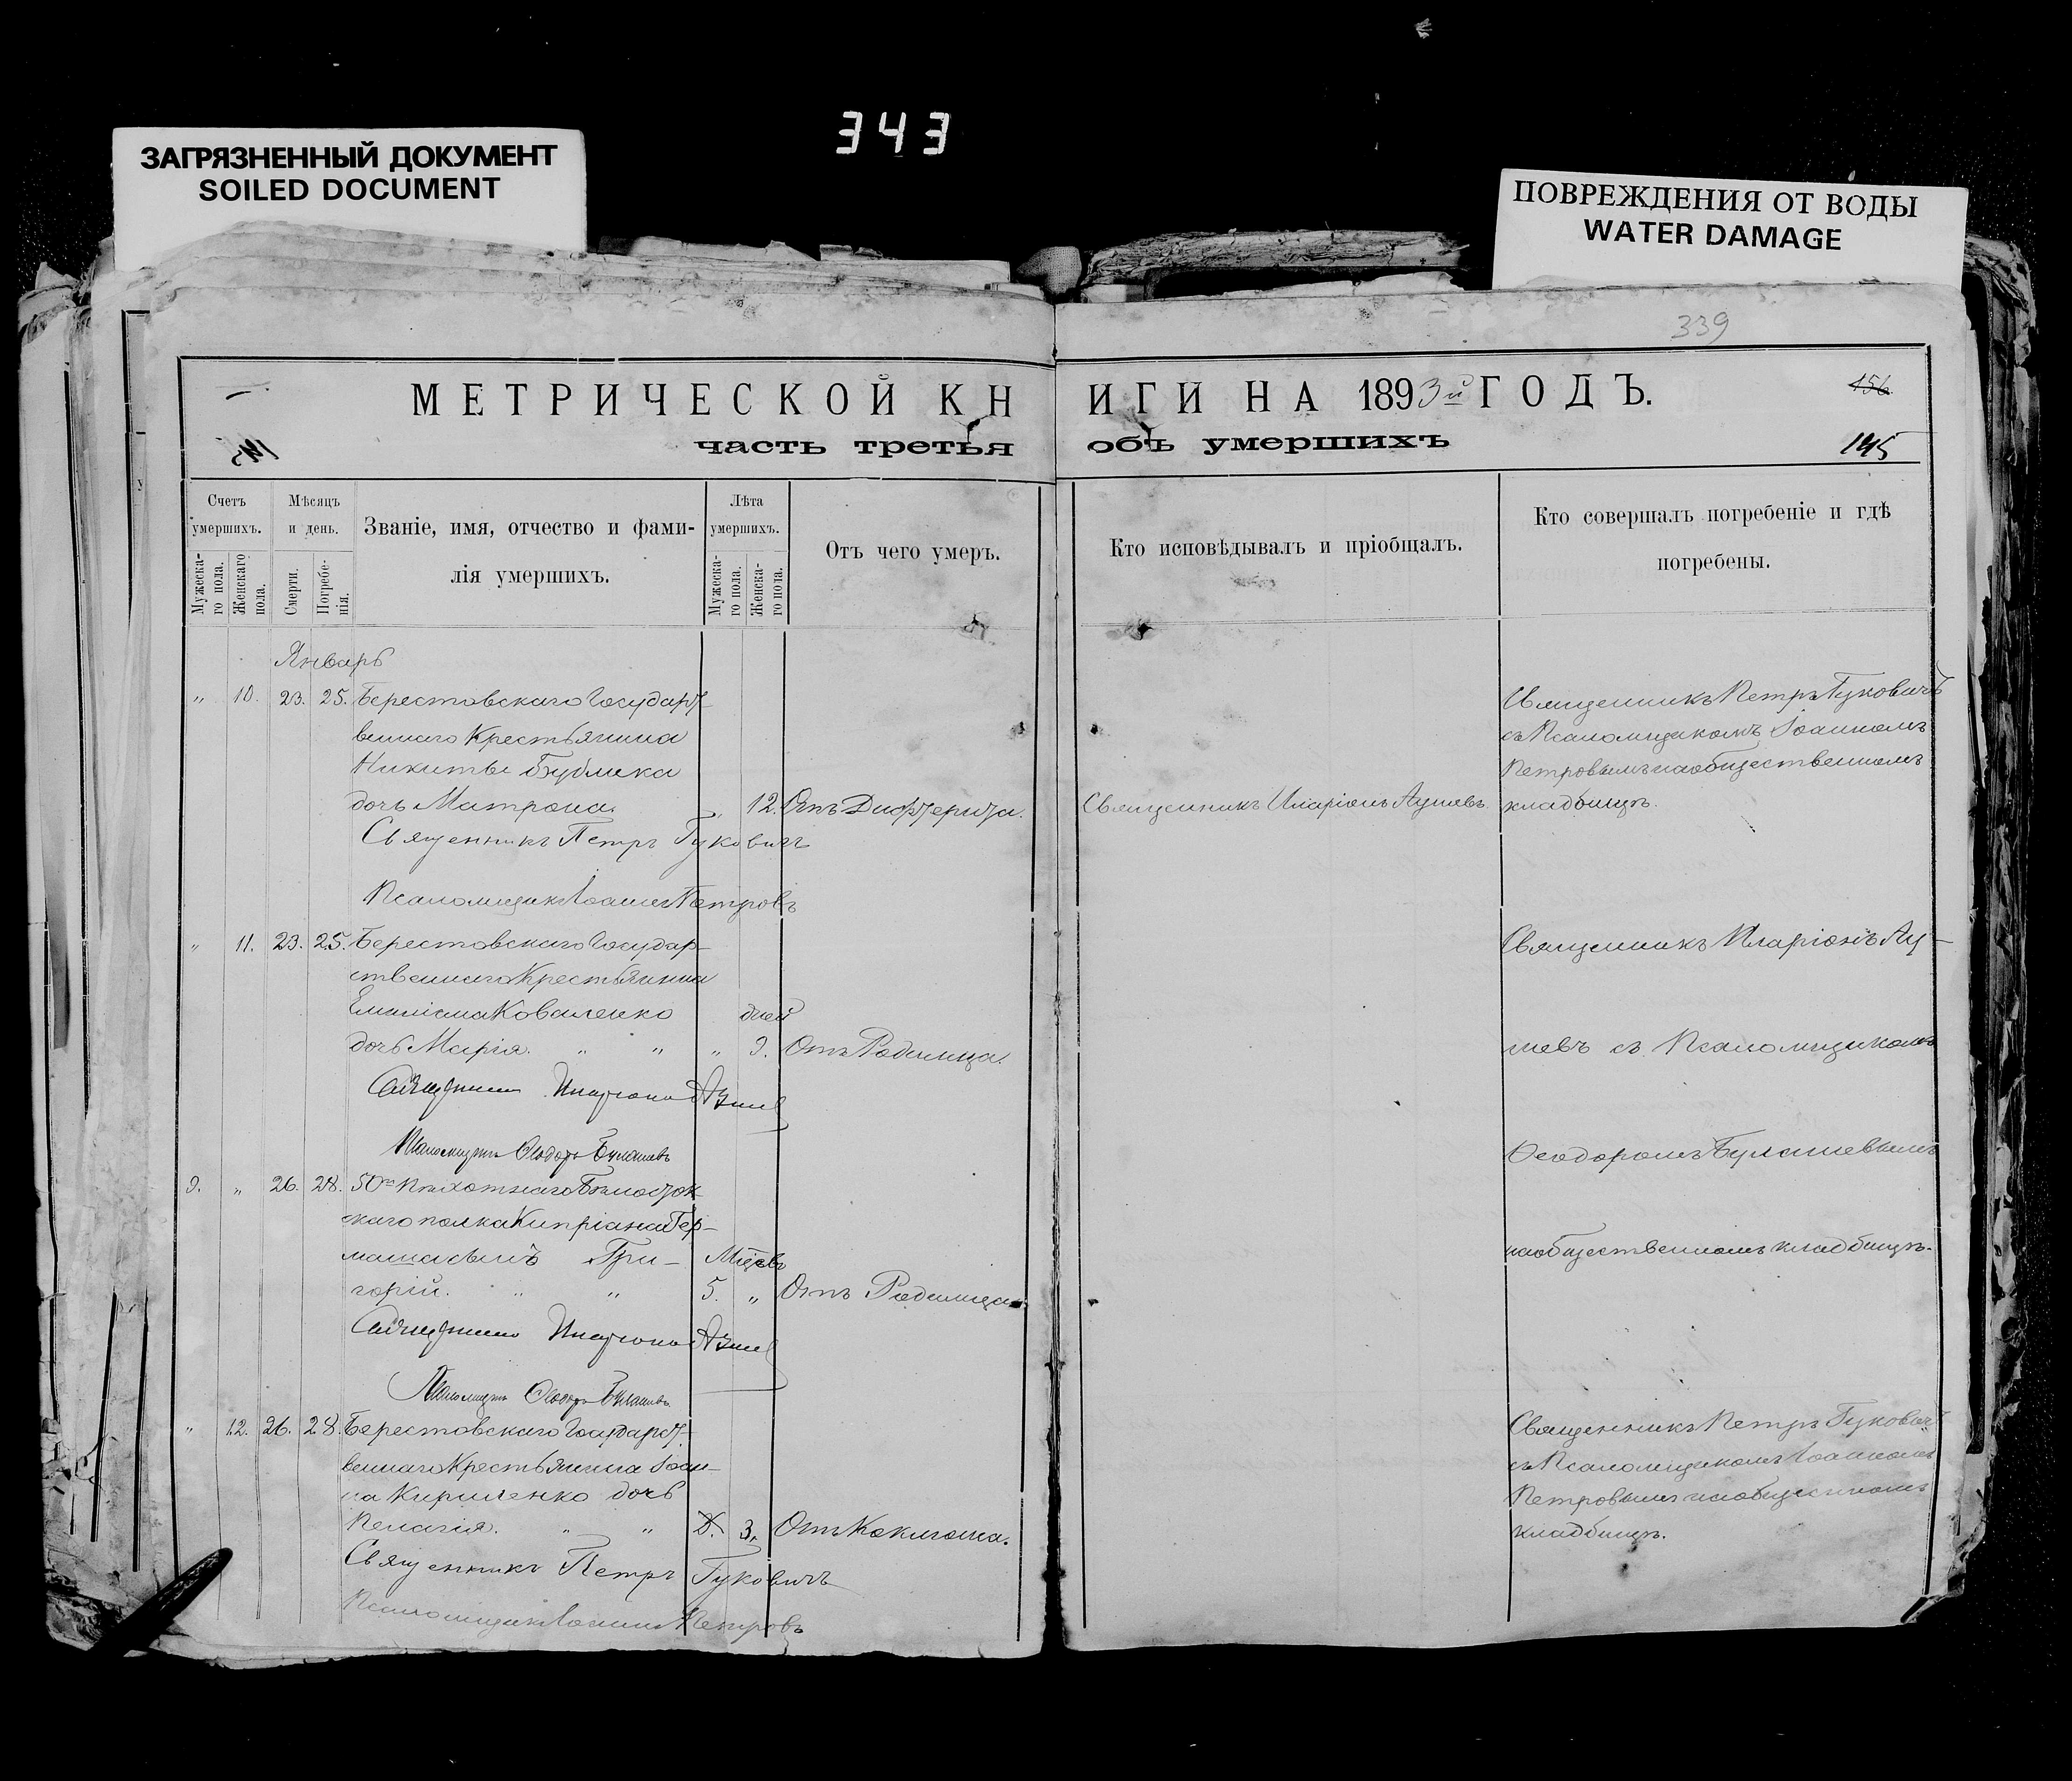 343
ЗАГРЯЗНЕННЫЙ ДОКУМЕНТ
SOILED DOCUMENT
ПОВРЕЖДЕНИЯ ОТ ВОДЫ
WATER DAMAGE
339
МЕТРИЧЕСКОЙ КНИГИ НА 1893й ГОДЪ.
156
часть третья объ умершихъ
145
Счетъ умершихъ.
Мужеска-го пола.
Женскаго пола.
Мѣсяцъ и день.
Смерти.
Погребе-нія.
Званіе, имя, отчество и фами-
лія умершихъ.
Лѣта умершихъ.
Мужеска-го пола.
Женска-го пола.
Отъ чего умеръ.
Кто исповѣдывалъ и пріобщалъ.
Кто совершалъ погребеніе и гдѣ
погребены.
Январь
" 10. 23. 25. Берестовскаго Государст-
веннаго Крестьянина
Никиты Бублика
дочь Матрона. " 12. Отъ Дифтерита. Священникъ Иларіонъ
Священникъ Петръ Гуковичъ
съ Псаломщикомъ Іоанномъ
Петровымъ на общественномъ
кладбищѣ.
Священникъ Петръ Гуковичъ
Псаломщикъ Іоаннъ Петровъ
" 11. 23. 25. Берестовскаго Государ-
ственнаго Крестьянина
Коваленко дней
дочь Марія. " " " 9. Отъ Родимца.
Священникъ Иларіонъ
съ Псаломщикомъ
Ѳеодоромъ
на общественномъ кладбищѣ.
Священникъ Иларіонъ
Псаломщикъ Ѳеодоръ
9. " 26. 28. 50го Пѣхотнаго Бѣлосток-
скаго полка Кипріана Гер-
мана сынъ Гри- Мѣсяц.
горій. " " 5. " Отъ Родимца.
Священникъ Иларіонъ
Псаломщикъ Ѳеодоръ
" 12. 26. 28. Берестовскаго Государст-
веннаго Крестьянина Іоан-
на Кириленко дочь
Пелагія. " " 3. Отъ Коклюша.
Священникъ Петръ Гуковичъ
съ Псаломщикомъ Іоанномъ
Петровымъ на общественномъ
кладбищѣ.
Священникъ Петръ Гуковичъ
Псаломщикъ Іоаннъ Петровъ